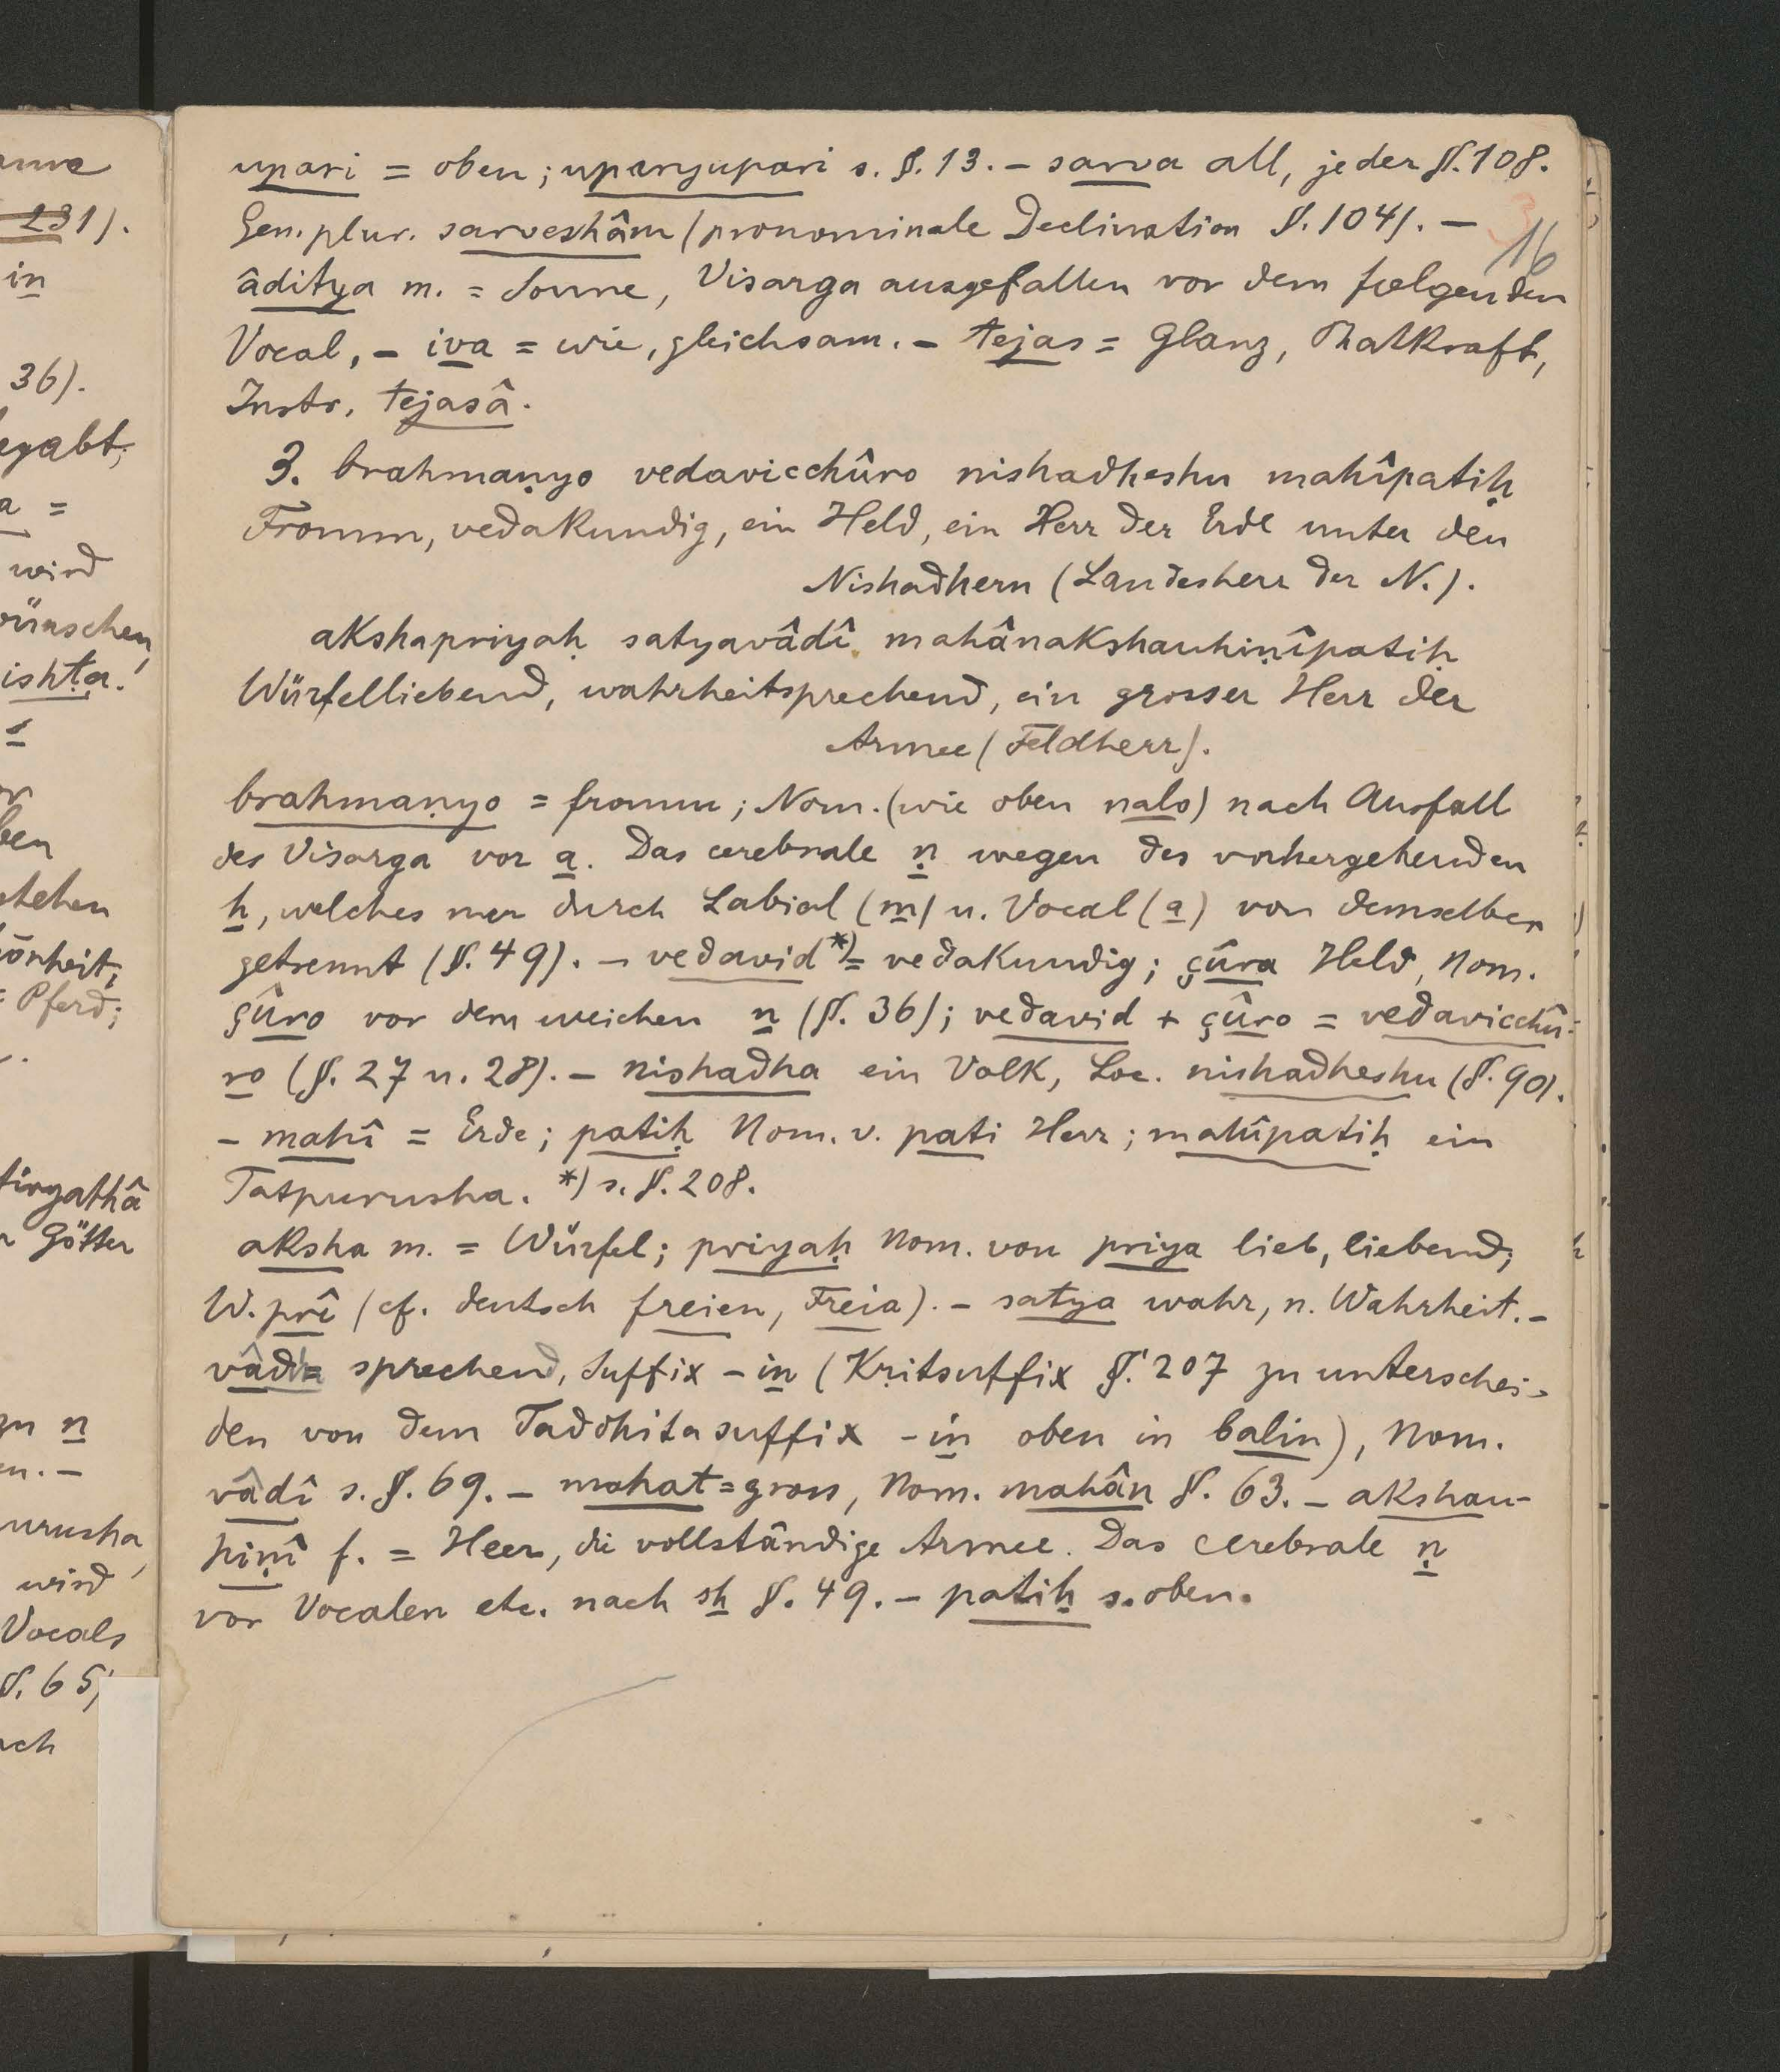 upari = oben; uparyupari s. §. 13. – sarva all, jeder §. 108.
Gen. plur. sarveshâm (pronominale Declination §. 104). –
16
âditya m. = Sonne, Visarga ausgefallen vor dem folgenden
Vocal, – iva = wie, gleichsam. – tejas = Glanz, Thatkraft,
Instr. tejasâ.
3. brahmaṇyo vedavicchûro nishadheshu mahîpatiḥ
Fromm, vedakundig, ein Held, ein Herr der Erde unter den
Nishadhern (Landesherr der N.).
akshapriyaḥ satyavâdî mahânakshauhiṇîpatiḥ
Würfelliebend, wahrheitsprechend, ein grosser Herr der
Armee (Feldherr).
brahmaṇyo = fromm; Nom. (wie oben nalo) nach Ausfall
des Visarga vor a. Das cerebrale ṇ wegen des vorhergehenden
h, welches nur durch Labial (m) u. Vocal (a) von demselben
getrennt (§. 49). – vedavid *) = vedakundig; çûra Held, Nom.
çûro vor dem weichen n (§. 36); vedavid + çûro = vedavicchû-
ro (§. 27 u. 28). – nishadha ein Volk, Loc. nishadheshu (§. 90).
– mahî = Erde; patiḥ Nom. v. pati Herr; mahîpatiḥ ein
Tatpurusha. *) s. §. 208.
aksha m. = Würfel; priyaḥ Nom. von priya lieb, liebend;
W. prî (cf. deutsch freien, Freia). – satya wahr, n. Wahrheit. –
vâdin = sprechend, Suffix – in (Kṛitsuffix §. 207 zu unterschei-
den von dem Taddhitasuffix – in oben in balin), Nom.
vâdî s. §. 69. – mahat = gross, Nom. mahân §. 63. – akshau-
hiṇî f. = Heer, die vollständige Armee. Das cerebrale ṇ
vor Vocalen etc. nach sh §. 49. – patiḥ s. oben.
231).
in
36).
a =
wird
ishṭa.
ben
Pferd;
Götter
zu n
wird
Vocals
§. 65;